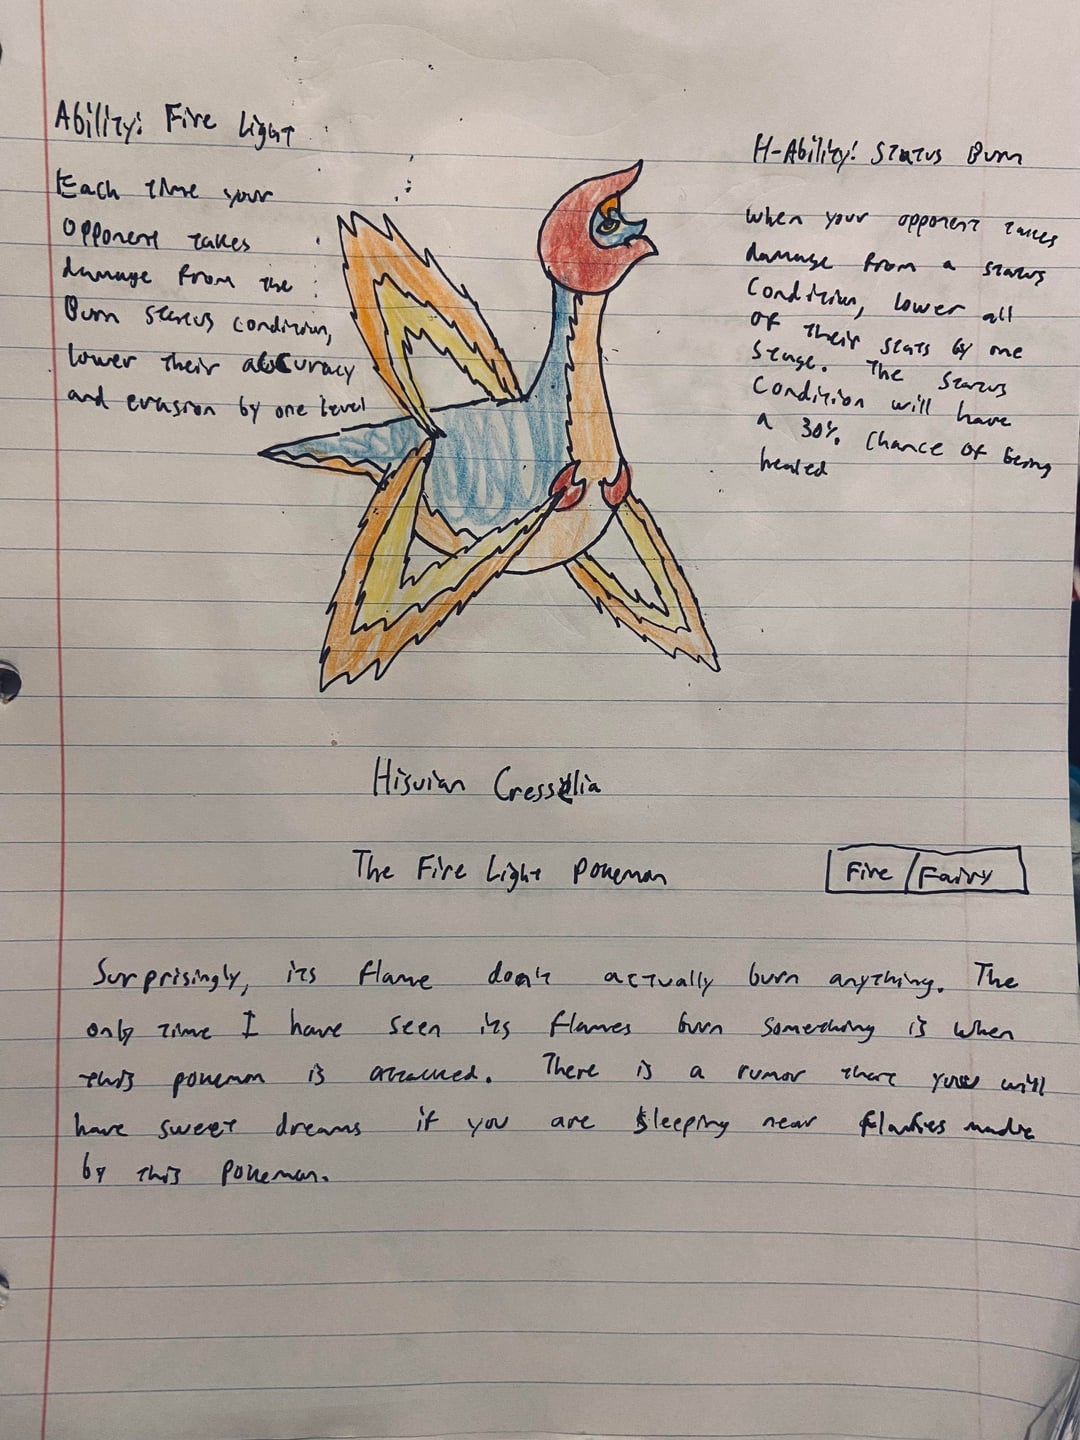 Ability: Fire Light
Each time your
opponent takes
damage from the
Burn status condition,
lower their accuracy
and evasion by one level
H-Ability: Status Burn
when your opponent takes
damage from a status
Condition, lower all
of their stats by one
stage. The status
Condition will have
a 30% chance of being
healed
Hisuian Cresselia
The Fire Light Pokemon
Fire / Fairy
Surprisingly, its flame don't actually burn anything. The
only time I have seen its flames burn something is when
this pokemon is attacked. There is a rumor that you will
have sweet dreams if you are sleeping near flames made
by this pokemon.